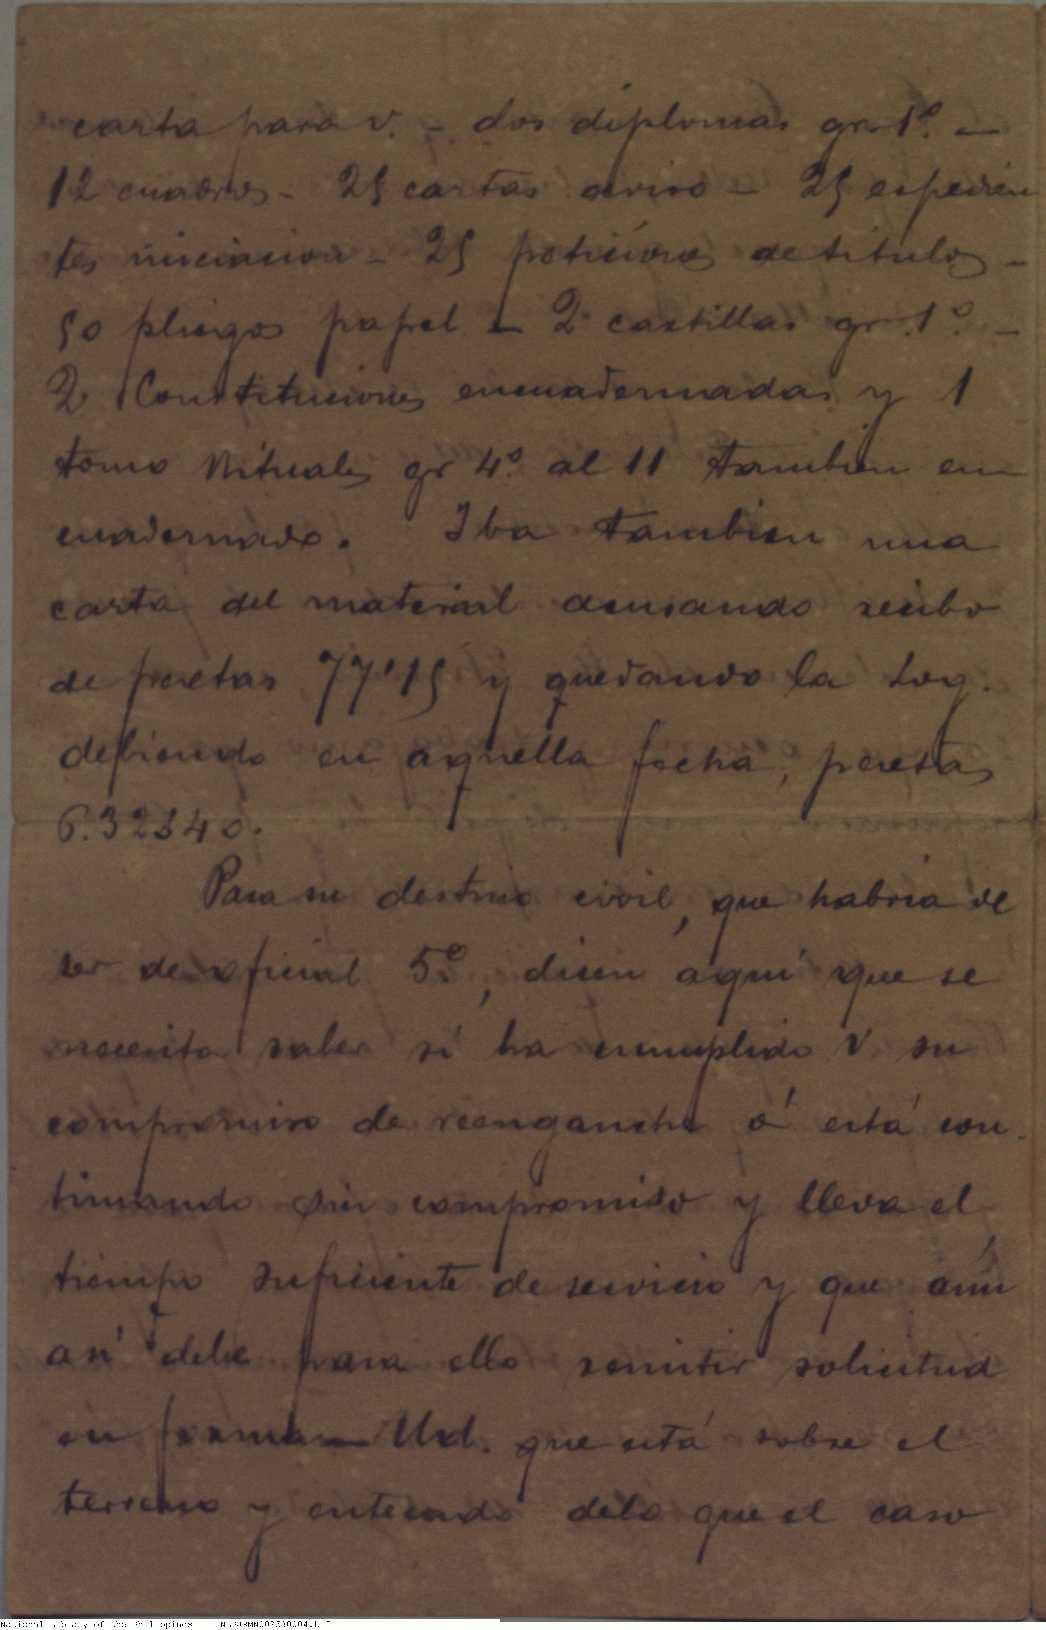 carta para v. - dos diplomas gr. 1º. -
12 cuadros - 25 cartas aviso - 25 espedien
tes iniciacion - 25 peticiones de titulos -
50 pliegos papel - 2 cartillas gr. 1º. -
2 Constituciones encuadernadas y 1
tomo Rituales gr 4º. al 11 tambien en
cuadernado. Iba tambien una
carta del material acusando recibo
de pesetas 77'15 y quedando la Log.
debiendo en aquella fecha, pesetas
6.32340.
Para su destino civil, que habria de
ser de oficial 5º., dicen aquí que se
necesita saber si ha cumplido V su
compromiso de reenganche ó está con
tinuando sin compromiso y lleva el
tiempo suficiente de servicio y que aún
así debe para ello remitir solicitud
en forma - Ud. que está sobre el
terreno y enterado delo que el caso
National Library of the Philippines